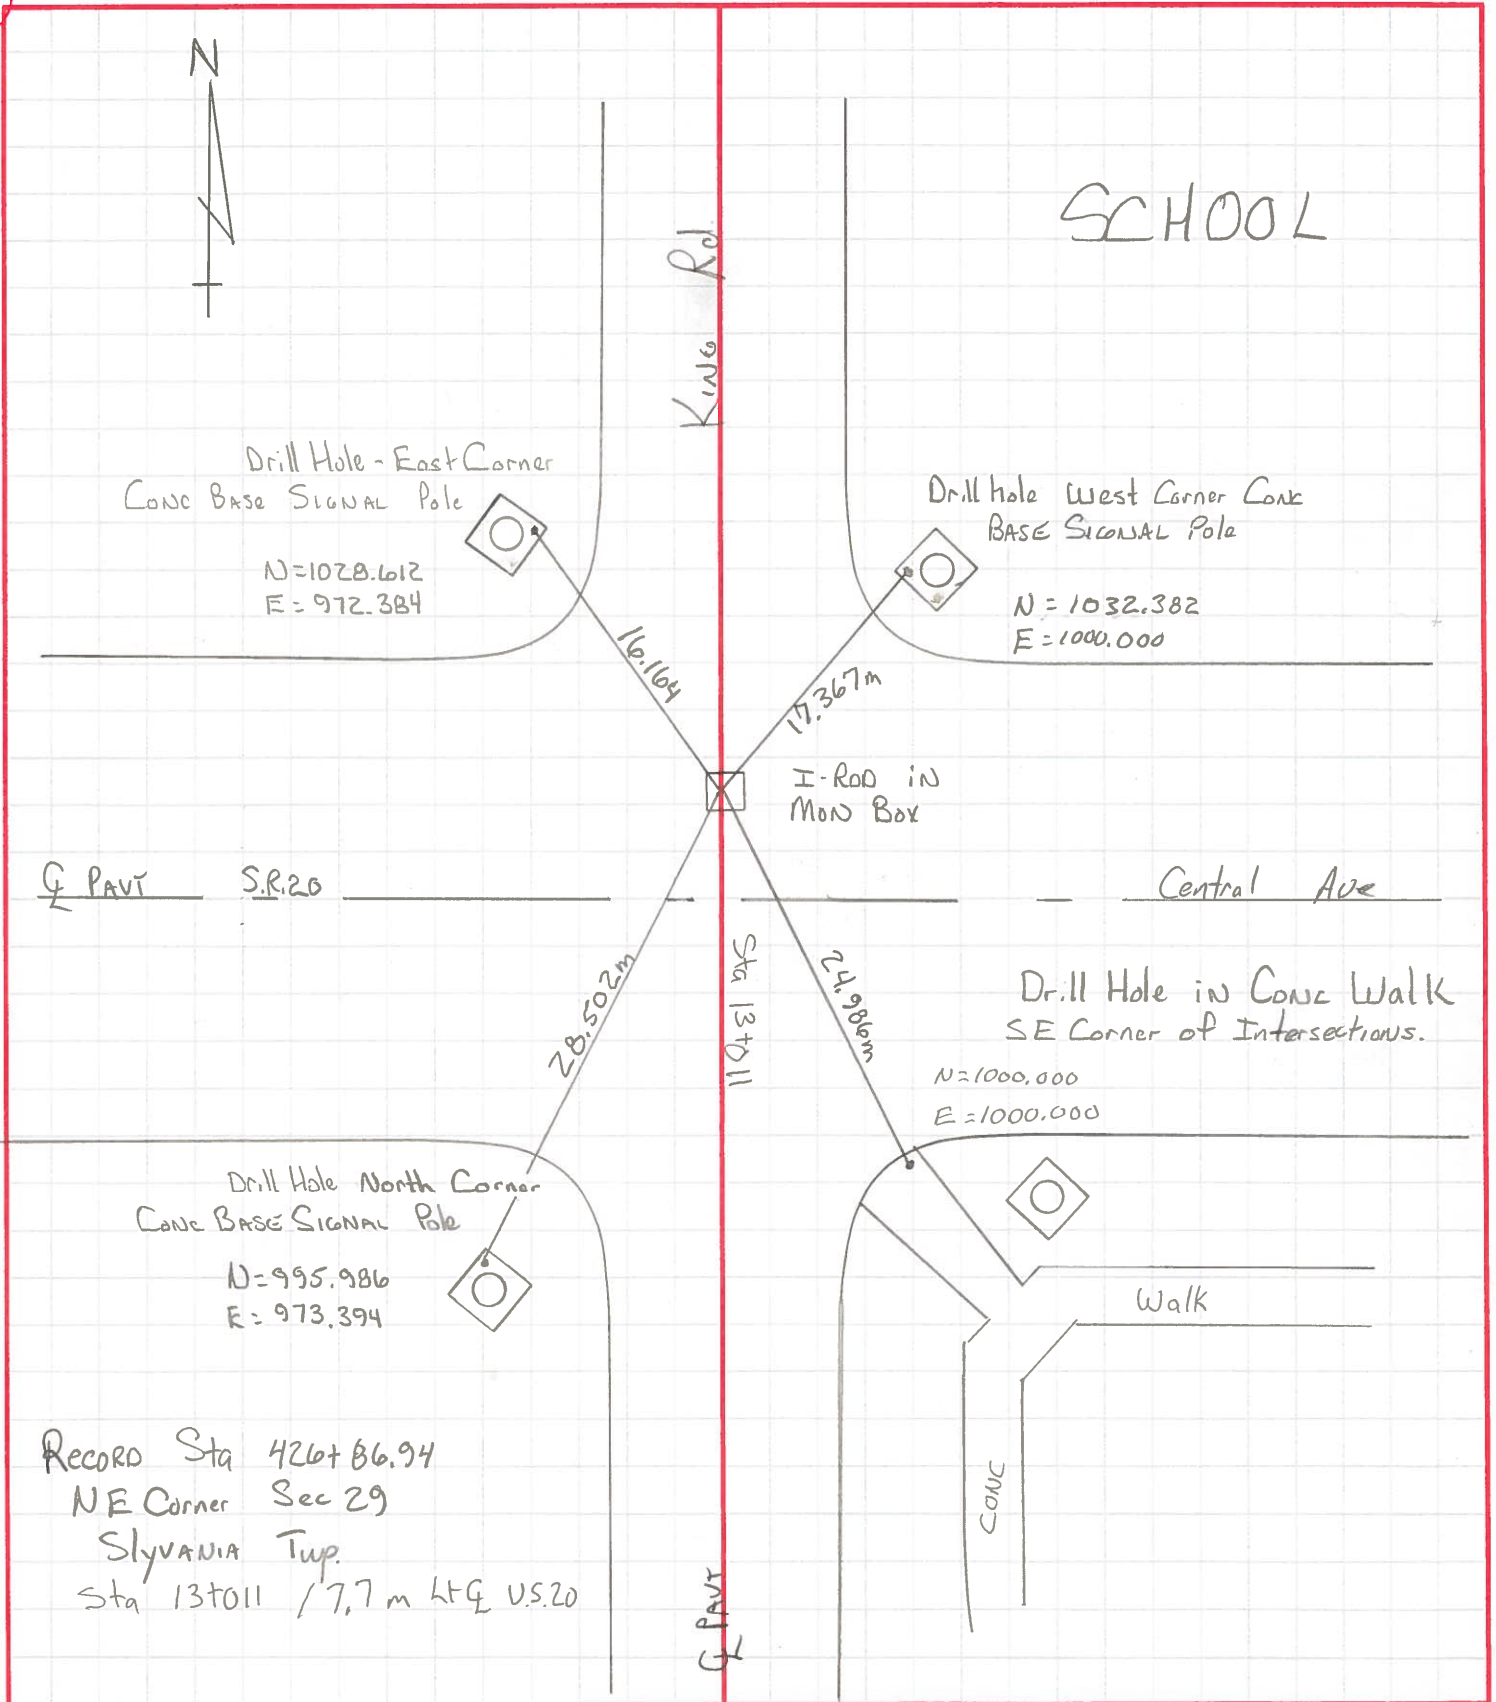 N
SCHOOL
King Rd.
Drill Hole - East Corner
Conc Base Signal Pole
N=1028.612
E=972.384
Drill hole West Corner Conc
Base Signal Pole
N=1032.382
E=1000.000
16.164
17.367m
I-Rod in
Mon Box
℄ Pavt S.R.20
Central Ave
28.502m
Sta 13+011
24.986m
Drill Hole in Conc Walk
SE Corner of Intersections.
N=1000.000
E=1000.000
Drill Hole North Corner
Conc Base Signal Pole
N=995.986
E=973.394
Walk
Conc
Record Sta 426+86.94
NE Corner Sec 29
Slyvania Twp.
Sta 13+011 / 7.7m Lt ℄ U.S.20
℄ Pavt